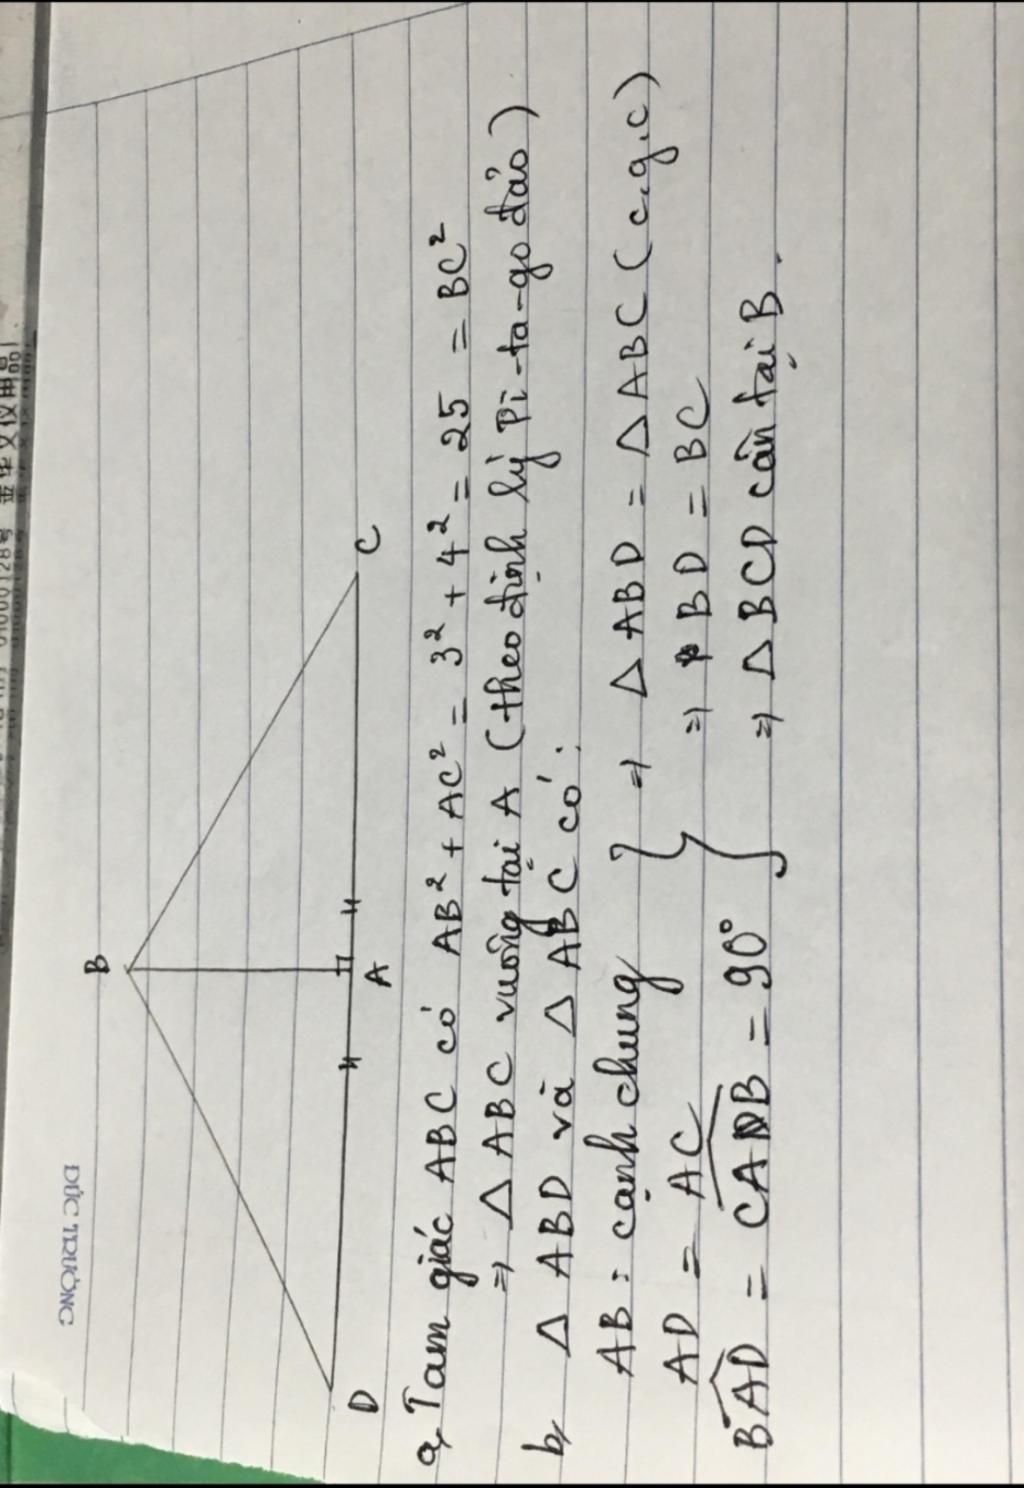 ĐỨC TRƯỜNG
B
D
A
C
a, Tam giác ABC có AB² + AC² = 3² + 4² = 25 = BC²
=) △ ABC vuông tại A (theo định lý Pi-ta-go đảo)
b, △ ABD và △ ABC có:
AB: cạnh chung
=) △ ABD = △ ABC (c.g.c)
AD = AC
=) BD = BC
BAD = CAB = 90°
=) △ BCD cân tại B.